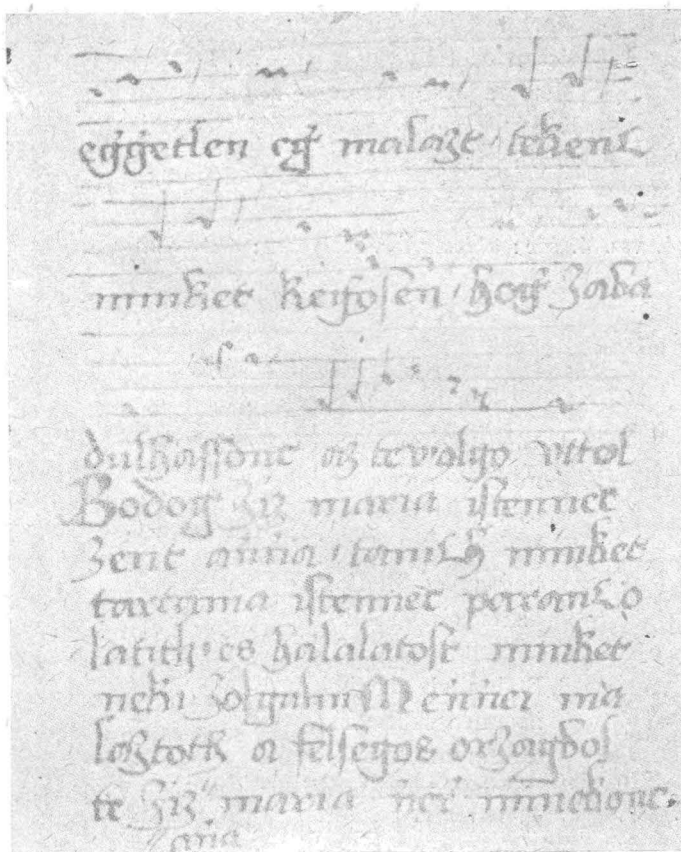 eggetlen eg malazt tekenc
minket keÿosen hog zaba
dulhassonc az te volgo vttol
Bodog ziz maria istennec
zent annia tanich minket
tartanma istennec parancʒo
latith es halalatost minket
neki zolgalni Mennei ma
laztoth a felsegos orzagbol
te ziz maria ker minekonc.